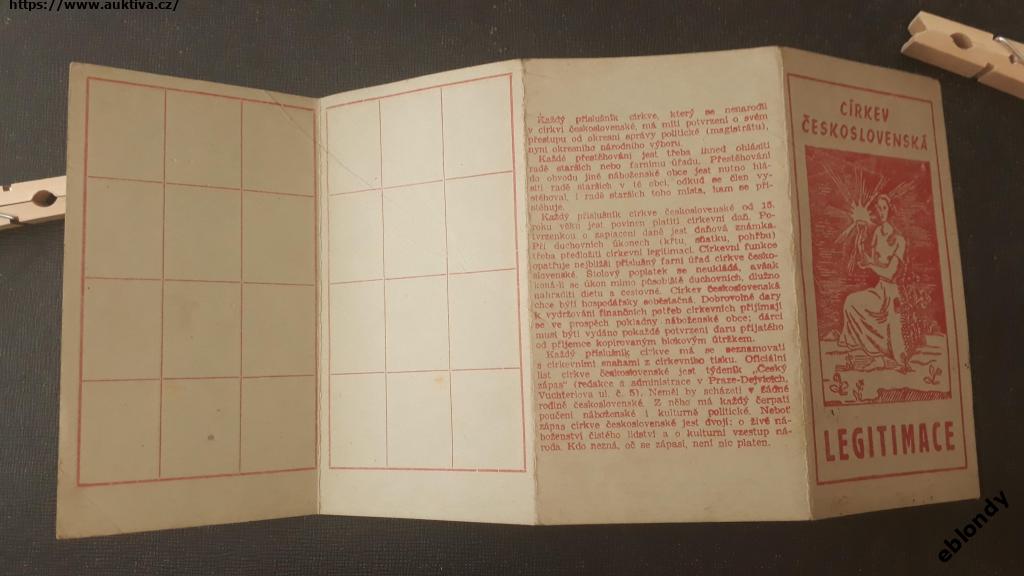 https://www.auktiva.cz/
Každý příslušník církve, který se nenarodil
v církvi československé, má míti potvrzení o svém
přestupu od okresní správy politické (magistrátu),
nyní okresního národního výboru.
Každé přestěhování jest třeba ihned ohlásiti
radě starších nebo farnímu úřadu. Přestěhování
do obvodu jiné náboženské obce jest nutno hlá-
siti radě starších v té obci, odkud se člen vy-
stěhoval, i radě starších toho místa, kam se při-
stěhuje.
Každý příslušník církve československé od 18.
roku věku jest povinen platiti církevní daň. Po-
tvrzenkou o zaplacení daně jest daňová známka.
Při duchovních úkonech (křtu, sňatku, pohřbu)
třeba předložiti církevní legitimaci. Církevní funkce
opatřuje nejbližší příslušný farní úřad církve česko-
slovenské. Štolový poplatek se neukládá, avšak
koná-li se úkon mimo působiště duchovních, dlužno
nahraditi dietu a cestovné. Církev československá
chce býti hospodářsky soběstačná. Dobrovolné dary
k vydržování finančních potřeb církevních přijímají
se ve prospěch pokladny náboženské obce; dárci
musí býti vydáno pokaždé potvrzení daru přijatého
od příjemce kopírovaným blokovým útržkem.
Každý příslušník církve má se seznamovati
s církevními snahami z církevního tisku. Oficiální
list církve československé jest týdeník „Český
zápas“ (redakce a administrace v Praze-Dejvicích,
Vuchterlova ul. č. 5). Neměl by scházeti v žádné
rodině československé. Z něho má každý čerpati
poučení náboženské i kulturně politické. Neboť
zápas církve československé jest dvojí: o živé ná-
boženství čistého lidství a o kulturní vzestup ná-
roda. Kdo nezná, oč se zápasí, není nic platen.
CÍRKEV
ČESKOSLOVENSKÁ
LEGITIMACE
eblondy